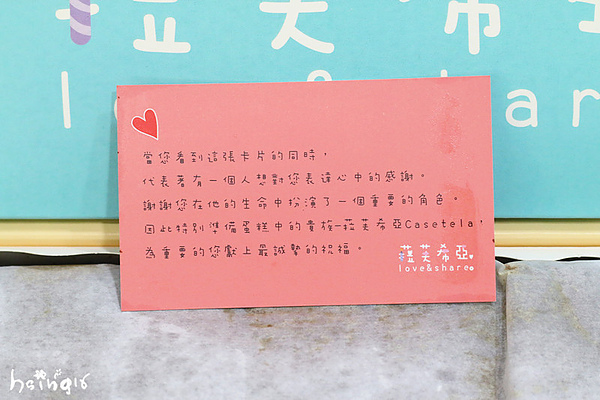 菈芙希亞
love&share
當您看到這張卡片的同時，
代表著有一個人想對您表達心中的感謝。
謝謝您在他的生命中扮演了一個重要的角色。
因此特別準備蛋糕中的貴族-菈芙希亞Casetela，
為重要的您獻上最誠摯的祝福。
菈芙希亞
love&share
hsing16